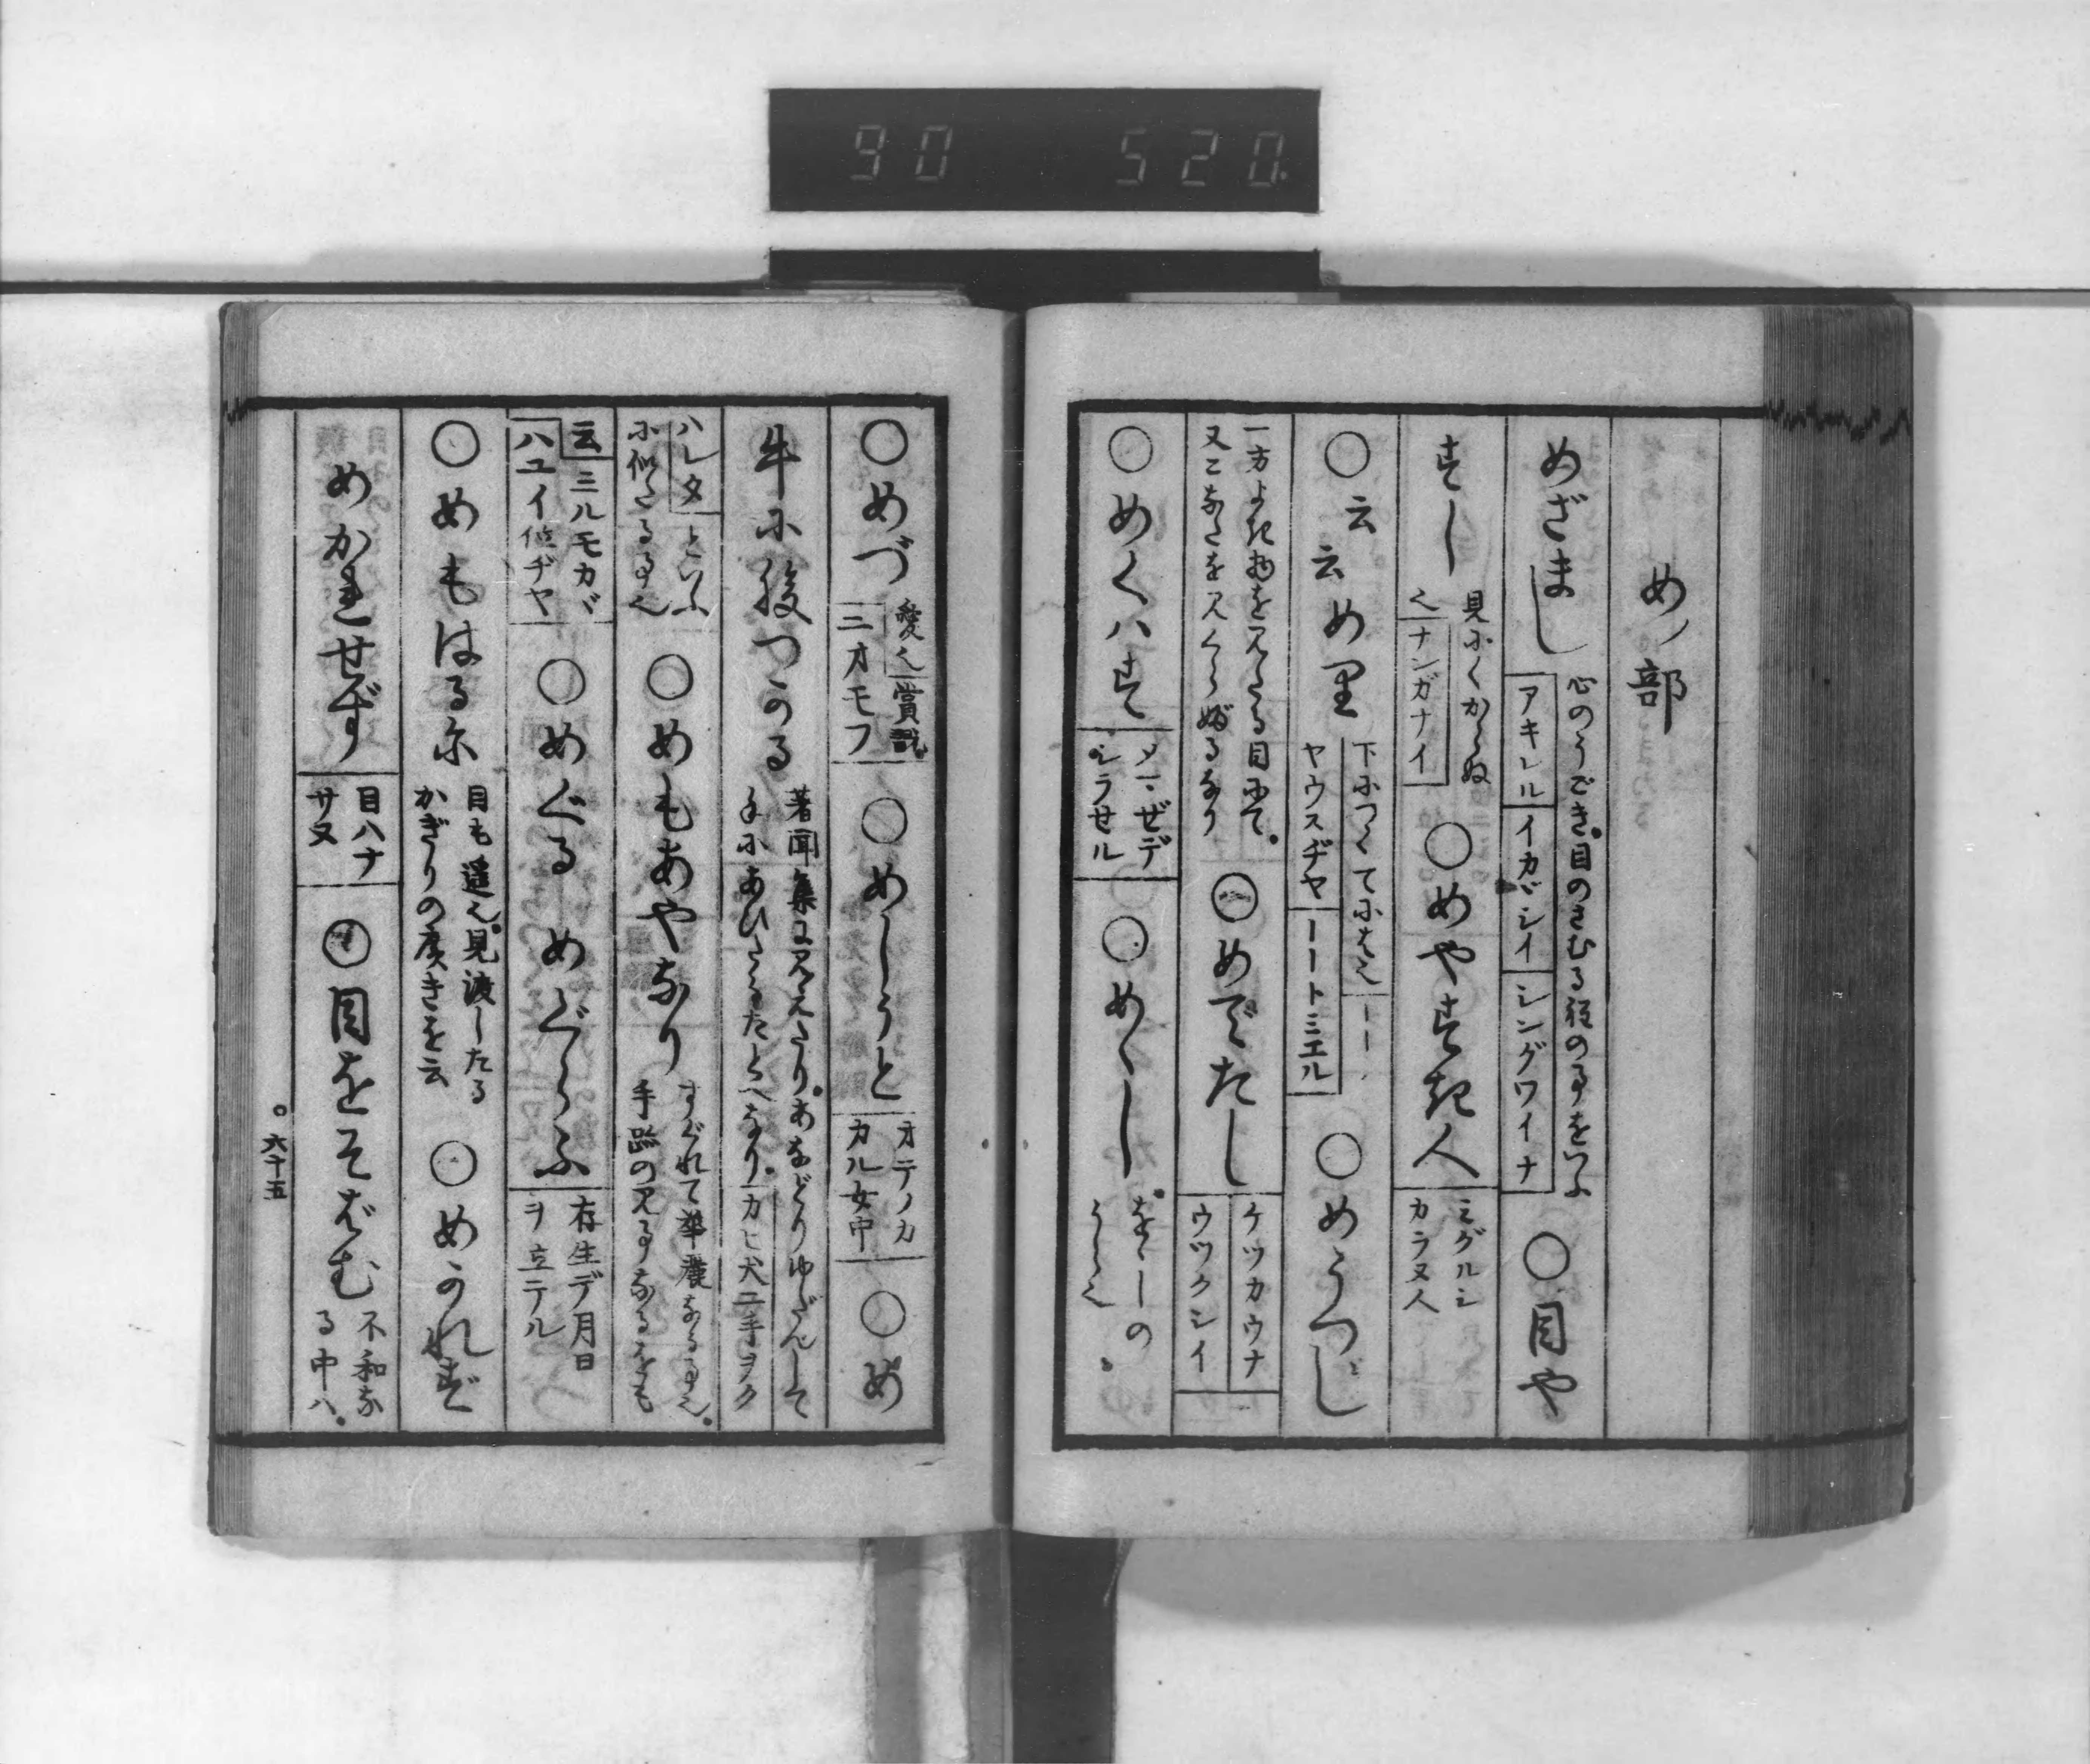 90 520
め ノ 部
めざまし 心のうごき。目のさむる程の事をいふ アキレル イカヾシイ シングワイナ ○目や
すし 見にくからぬ也 ナンガナイ ○めやすき人 ミグルシカラヌ人
○云云めり 下につくてにはヱ ヤウスヂヤ ーートミエル ○めうつし
一方よき物を見たる目にて。又こなたを見くらぶるなり ○めでたし ケツカウナ ウツクシイ
○めくハす メマゼデシラセル ○めゝし をゝしのうら也
○めづ 愛也賞 ニオモフ ○めしうと オテノカカル女中 ○め
牛に腹つかる 著聞集に見えたり。あなどりゆだんして手にあひたるたとへなり。カヒ犬ニ手ヲク
ハレタ といふに似たる事也 ○めもあやなり すぐれて華麗なる事也。手跡の見事なるをも
云 ミルモカヾハユイ位ヂヤ ○めぐる めぐらふ 存生デ月日ヲ立テル
○めもはるに 目も遥也。見渡したるかぎりの広きを云 ○めかれず
めかれせず 目ハナサヌ ○目をそばむ 不和なる中ハ。
○六十五